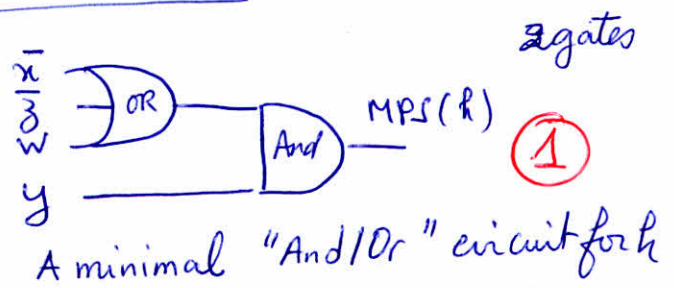 2gates
x̄
z̄ OR
w
And MPS(h) 1
y
A minimal "And/Or" circuit for h